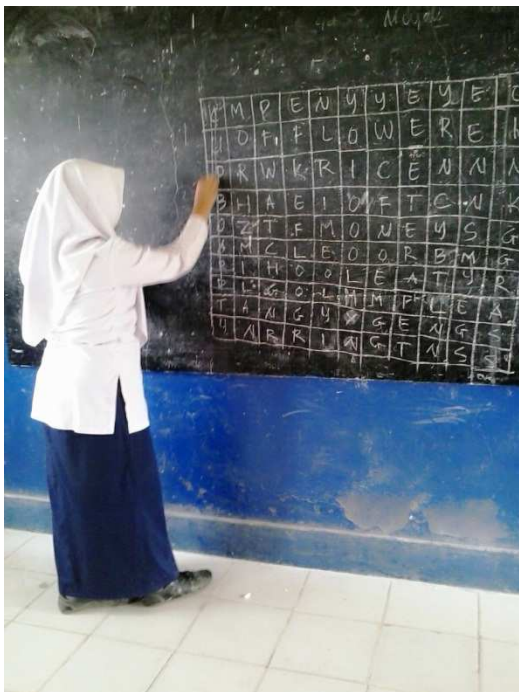 M P E N Y Y E Y E
O F F L O W E R E
R W K R I C E N N N
B H A E I O F T C N K
O Z T F M O N E Y S G
M C L E O O R B M G
R I H O O L E A T Y R
L G O L M M P L E A
T A N G Y G E N G S
Y N R R I N G T N S S